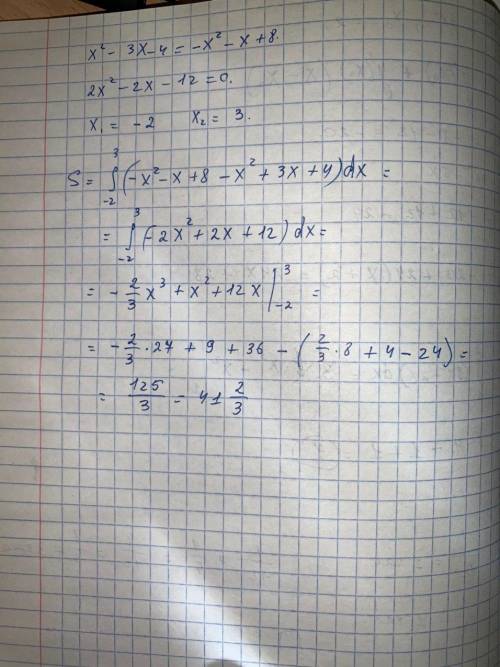 x² - 3x - 4 = -x² - x + 8.
2x² - 2x - 12 = 0.
x₁ = -2 x₂ = 3.
S = ∫₋₂³ (-x² - x + 8 - x² + 3x + 4) dx =
= ∫₋₂³ (-2x² + 2x + 12) dx =
= -2/3 x³ + x² + 12x |₋₂³ =
= -2/3 · 27 + 9 + 36 - (2/3 · 8 + 4 - 24) =
= 125/3 = 41 2/3